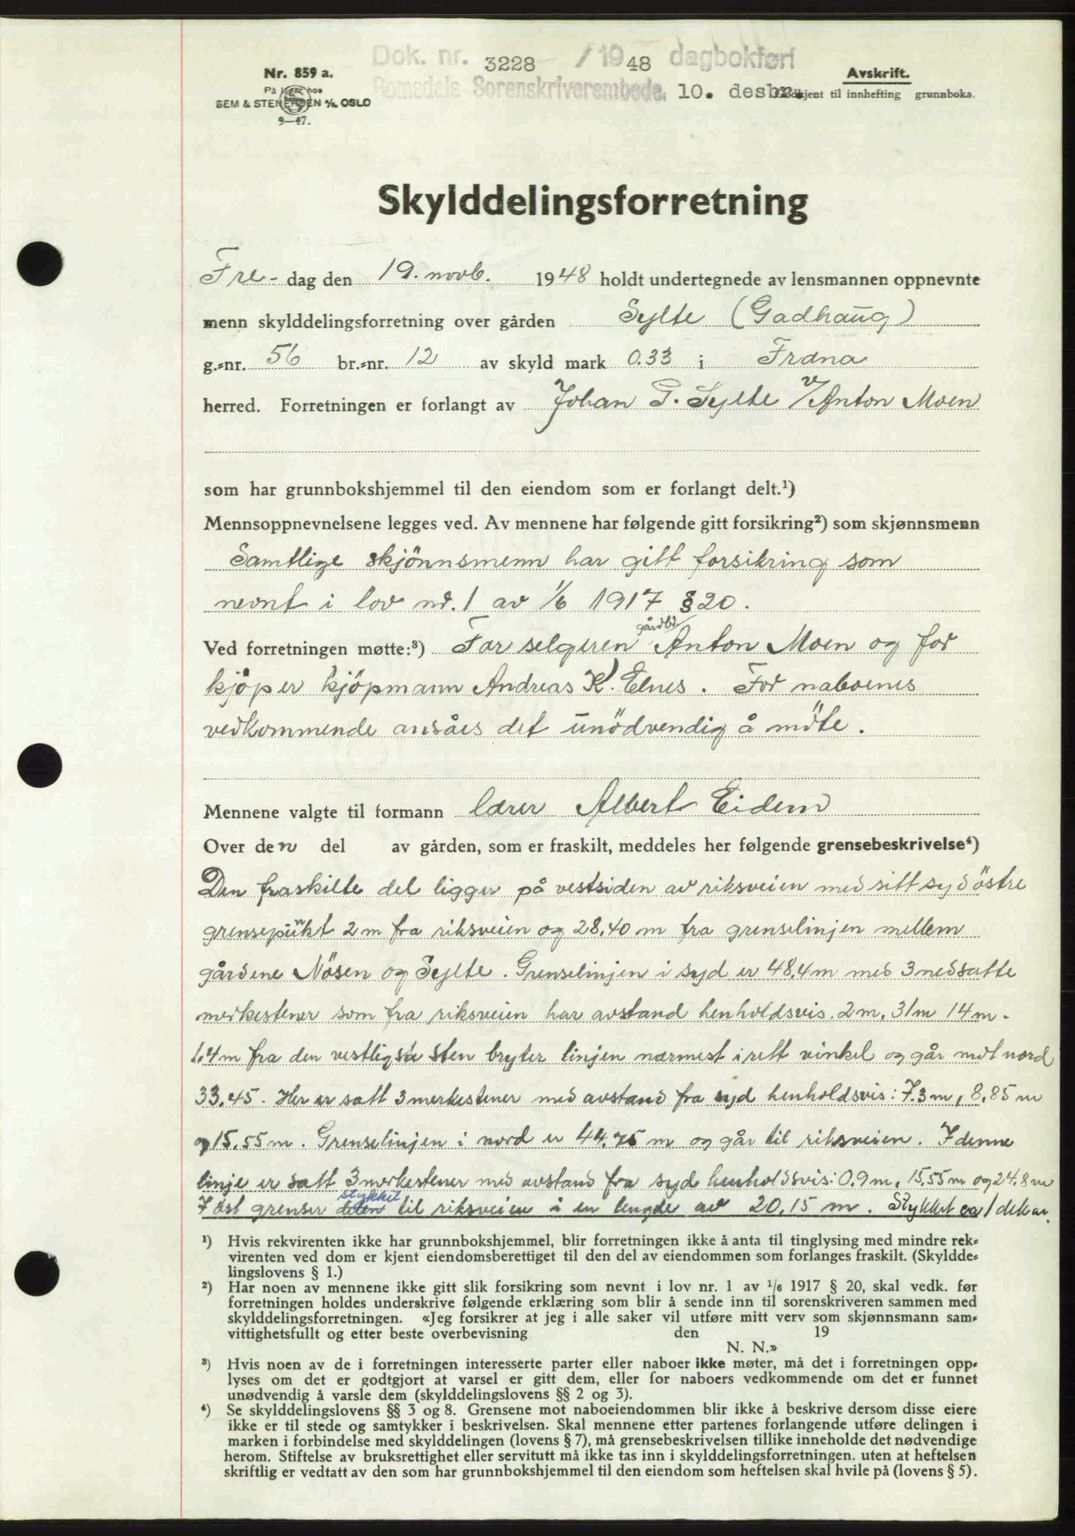 Dok. nr. 3228 / 1948 dagbokført
Romsdals Sorenskriverembede, 10. desbr.
Nr. 859 a.
På lager hos
SEM & STENERSEN A/S, OSLO
9—47.
Avskrift.
Godkjent til innhefting grunnboka.
Skylddelingsforretning
Fre- dag den 19. novb. 1948 holdt undertegnede av lensmannen oppnevnte
menn skylddelingsforretning over gården Sylte (Gadhaug)
g.-nr. 56 br.-nr. 12 av skyld mark 0.33 i Fræna
herred. Forretningen er forlangt av Johan G. Sylte v/Anton Moen
som har grunnbokshjemmel til den eiendom som er forlangt delt.¹)
Mennsoppnevnelsene legges ved. Av mennene har følgende gitt forsikring²) som skjønnsmenn
Samtlige skjönnsmenn har gitt forsikring som
nevnt i lov nr. 1 av 1/6 1917 § 20.
Ved forretningen møtte:³) For selgeren gårdbr. Anton Moen og for
kjöper kjöpmann Andreas K. Elnes. For naboenes
vedkommende ansåes det unödvendig å möte.
Mennene valgte til formann lærer Albert Eidem
Over den del av gården, som er fraskilt, meddeles her følgende grensebeskrivelse⁴)
Den fraskilte del ligger på vestsiden av riksveien med sitt sydöstre
grensepunkt 2 m fra riksveien og 28,40 m fra grenselinjen mellem
gårdene Nösen og Sylte. Grenselinjen i syd er 48,4 m med 3 nedsatte
merkestener som fra riksveien har avstand henholdsvis. 2 m, 31 m 14 m.
1,4 m fra den vestligste sten bryter linjen nærmest i rett vinkel og går mot nord
33,45. Her er satt 3 merkestener med avstand fra syd henholdsvis: 7.3 m, 8,85 m
og 15,55 m. Grenselinjen i nord er 44.75 m og går til riksveien. I denne
linje er satt 3 merkestener med avstand fra syd henholdsvis: 0.9 m, 15,55 m og 24.8 m
I öst grenser stykket til riksveien i en lengde av 20,15 m. Stykket ca 1 dekar.
¹) Hvis rekvirenten ikke har grunnbokshjemmel, blir forretningen ikke å anta til tinglysing med mindre rek-
virenten ved dom er kjent eiendomsberettiget til den del av eiendommen som forlanges fraskilt. (Skyldde-
lingslovens § 1.)
²) Har noen av mennene ikke gitt slik forsikring som nevnt i lov nr. 1 av 1/6 1917 § 20, skal vedk. før
forretningen holdes underskrive følgende erklæring som blir å sende inn til sorenskriveren sammen med
skylddelingsforretningen. «Jeg forsikrer at jeg i alle saker vil utføre mitt verv som skjønnsmann sam-
vittighetsfullt og etter beste overbevisning den 19
N. N.»
³) Hvis noen av de i forretningen interesserte parter eller naboer ikke møter, må det i forretningen opp-
lyses om det er godtgjort at varsel er gitt dem, eller for naboers vedkommende om det er funnet
unødvendig å varsle dem (skylddelingslovens §§ 2 og 3).
⁴) Se skylddelingslovens §§ 3 og 8. Grensene mot naboeiendommen blir ikke å beskrive dersom disse eiere
ikke er til stede og samtykker i beskrivelsen. Skal mennene etter partenes forlangende utføre delingen i
marken i forbindelse med skylddelingen (lovens § 7), må grensebeskrivelsen tillike inneholde det nødvendige
herom. Stiftelse av bruksrettighet eller servitutt må ikke tas inn i skylddelingsforretningen. uten at heftelsen
skriftlig er vedtatt av den som har grunnbokshjemmel til den eiendom som heftelsen skal hvile på (lovens § 5).